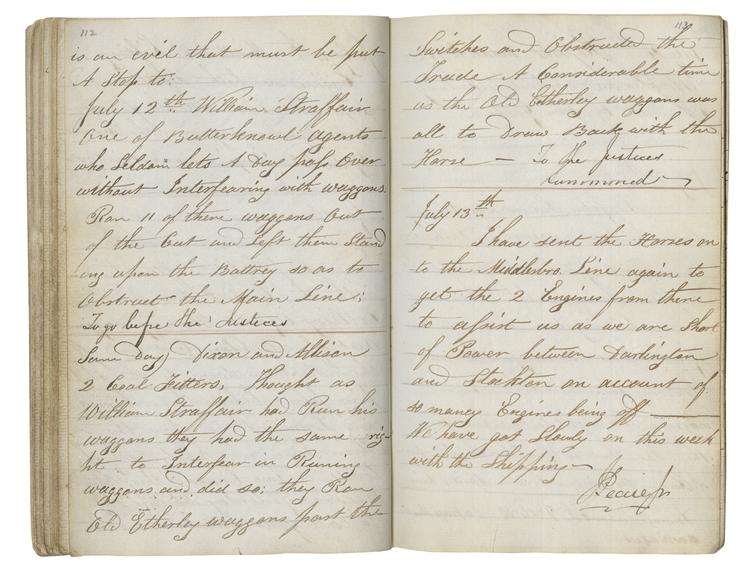 112
is an evil that must be put
A Stop to:
July 12th William Straffair
One of Butterknowl agents
who Seldam lets A Day pass Over
without Interfearing with waggons
Ran 11 of there waggons Out
of the Cut and Left them Stand
ing upon the Battrey so as to
Obstruct the Main Line;
To go before the Justices
Same day Dixon and Allison
2 Coal Fitters, Thought as
William Straffair had Run his
waggons they had the same rig-
ht to Interfear in Runing
waggons and did so; they Ran
Old Etherley waggons past the
113
Switches and Obstructed the
Trade A Considerable time
as the Old Etherley waggons was
all to Draw Back with the
Horse — To the Justices
summoned
July 13th
I have sent the Horses on
to the Middlesbro. Line again to
get the 2 Engines from there
to assist us as we are Short
of Power between Darlington
and Stockton on account of
so maney Engines being off
We have got Slowly on this week
with the Shipping —